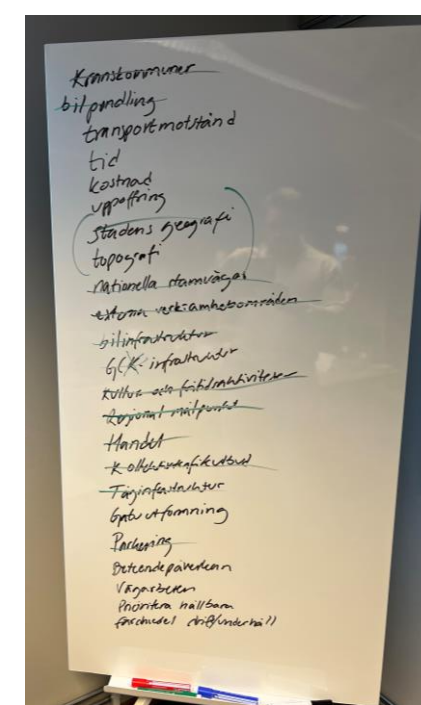 Kranskommuner
bilpendling
transportmotstånd
tid
kostnad
uppoffring
stadens geografi
topografi
nationella stamvägar
externa verksamhetsområden
bilinfrastruktur
GCK-infrastruktur
Kultur och fritidsaktiviteter
Regional målpunkt
Handel
Kollektivtrafikutbud
Tåginfrastruktur
Gatuutformning
Parkering
Beteendepåverkan
Vägarbeten
Prioritera hållbara
färdmedel drift/underhåll